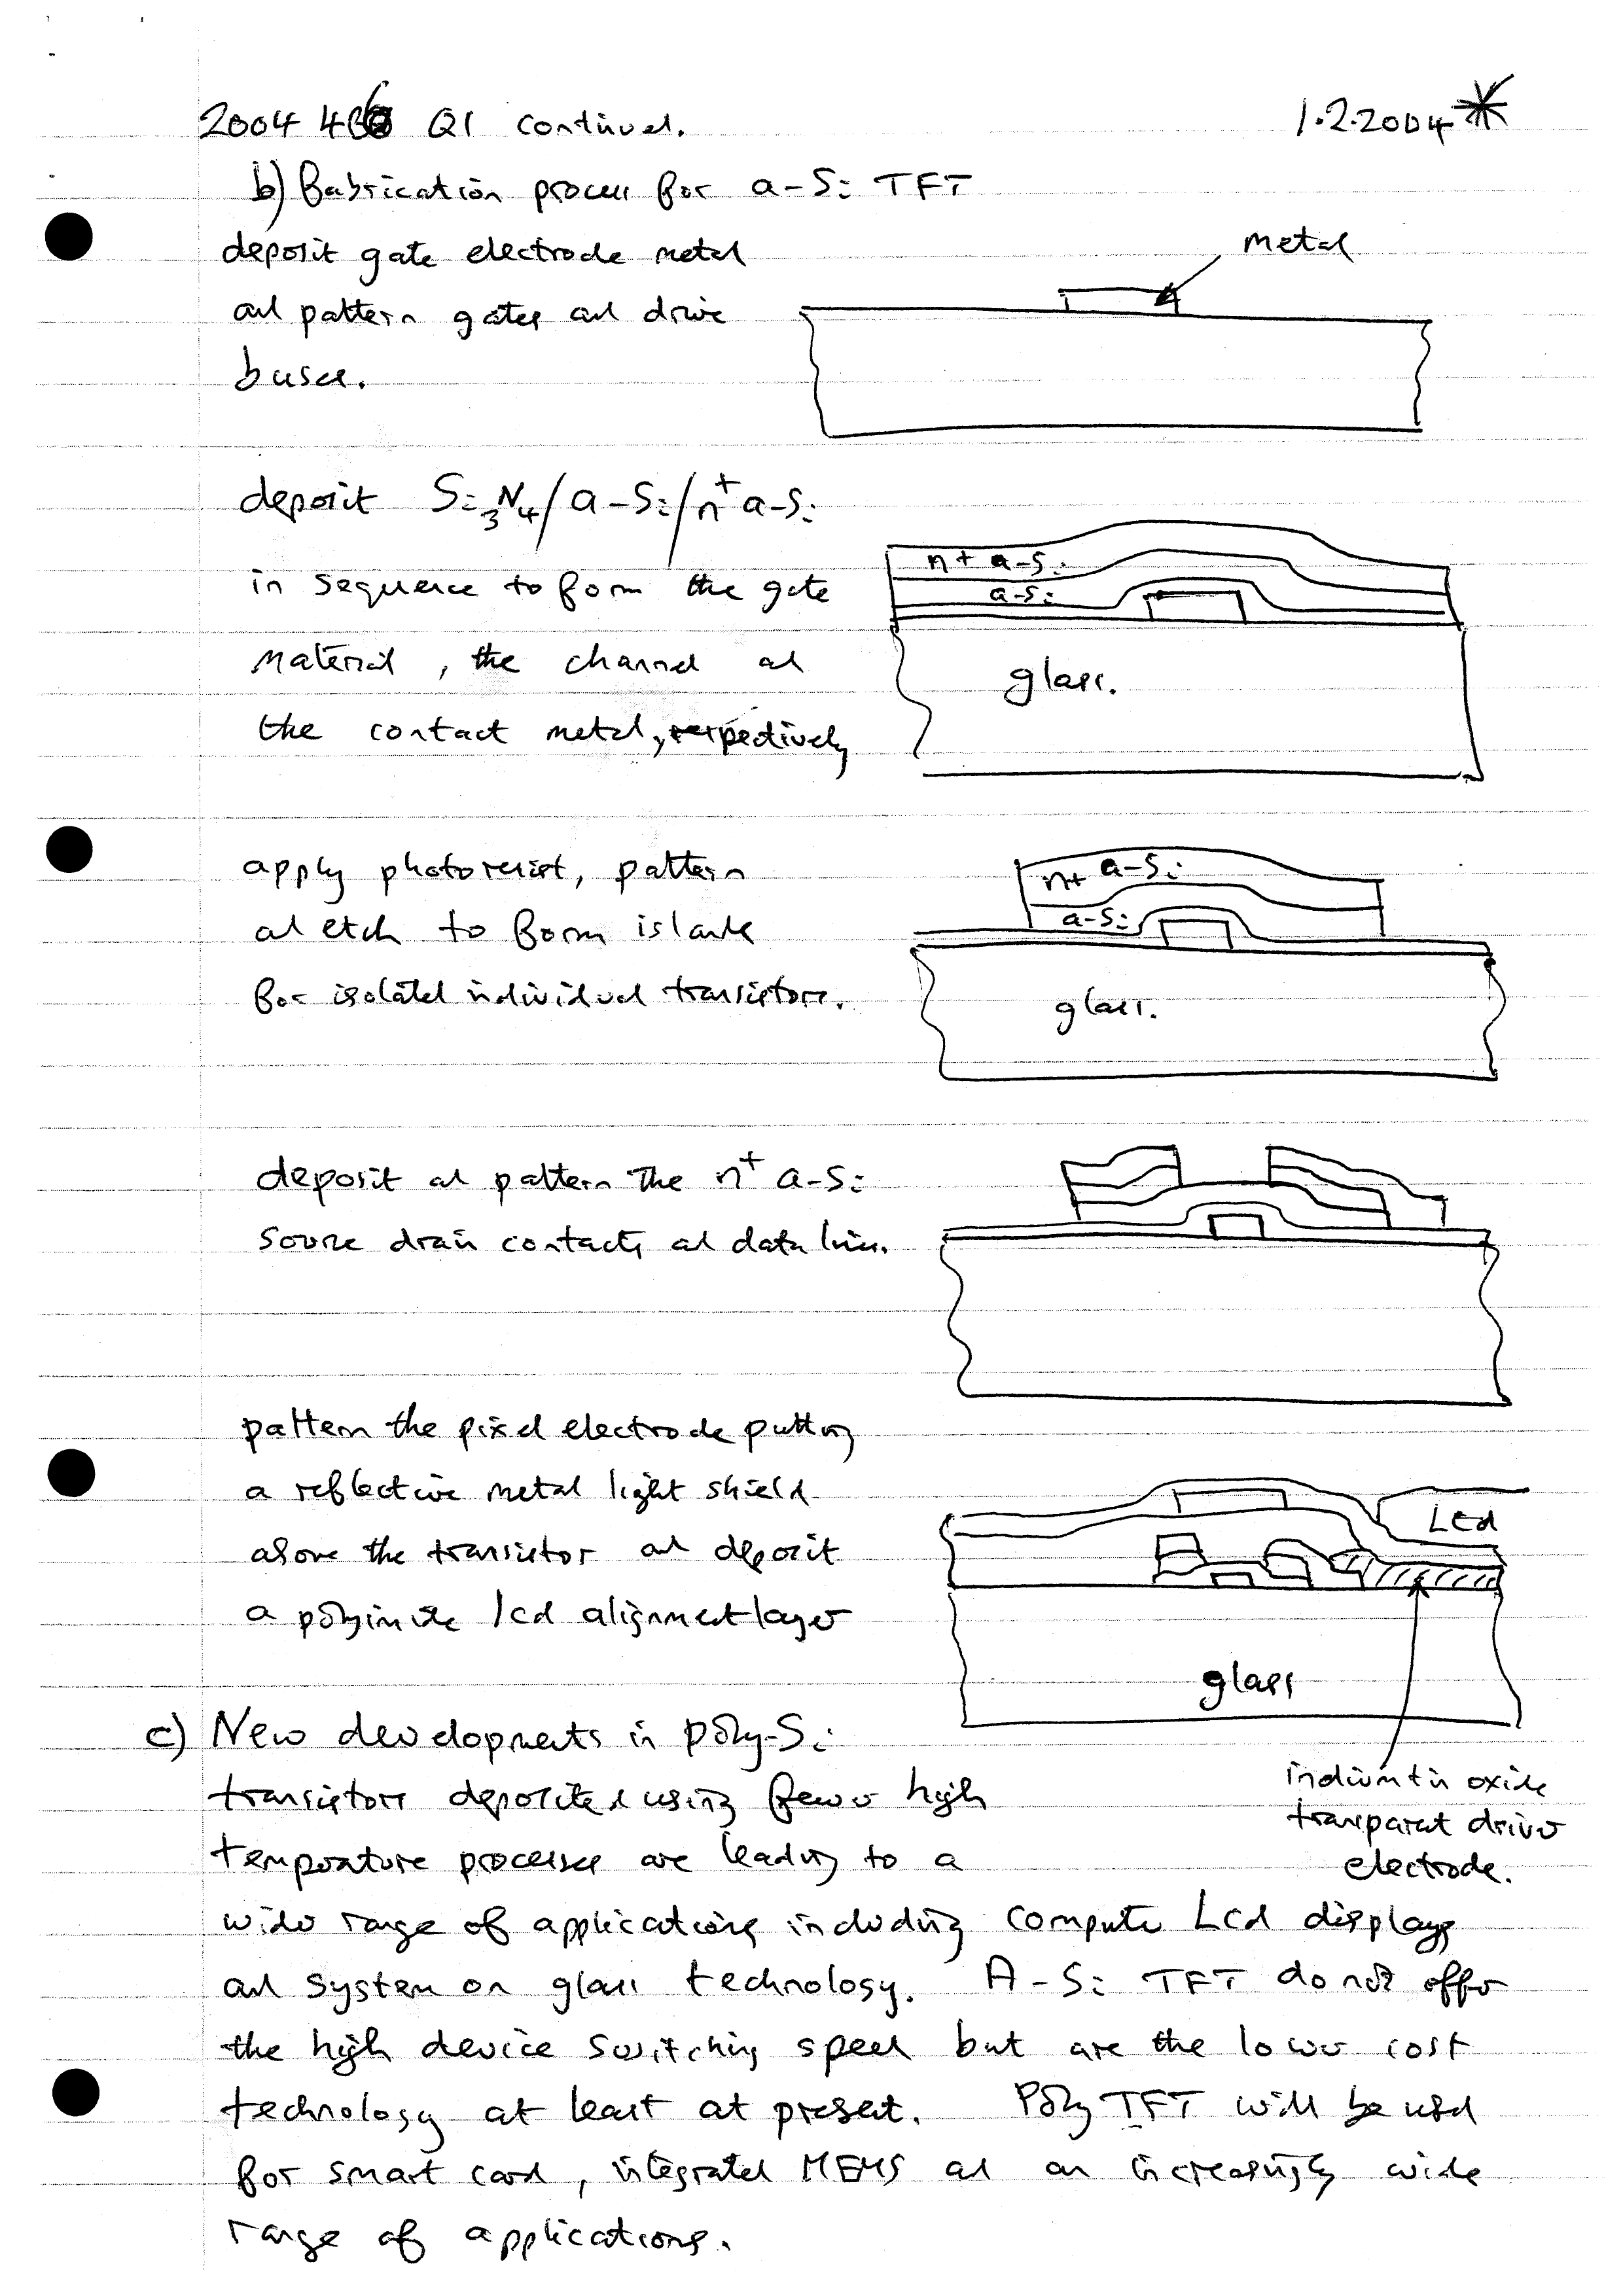 2004 4B6 Q1 continued.
1.2.2004 *
b) fabrication process for a-Si TFT
deposit gate electrode metal
and pattern gates and drive
buses.
metal
deposit Si3N4/a-Si/n+ a-Si
in sequence to form the gate
material, the channel and
the contact metal, respectively
n+ a-Si
a-Si
glass.
apply photoresist, pattern
and etch to form islands
for isolated individual transistors.
n+ a-Si
a-Si
glass.
deposit and pattern the n+ a-Si
source drain contacts and data lines.
pattern the pixel electrode putting
a reflective metal light shield
above the transistor and deposit
a polyimide lcd alignment layer
Lcd
glass
indium tin oxide
transparent driver
electrode.
c) New developments in poly-Si
transistors deposited using fewer high
temperature processes are leading to a
wider range of applications including computer Lcd displays
and system on glass technology. A-Si TFT do not offer
the high device switching speed but are the lower cost
technology at least at present. Poly TFT will be used
for smart card, integrated MEMS and an increasingly wide
range of applications.